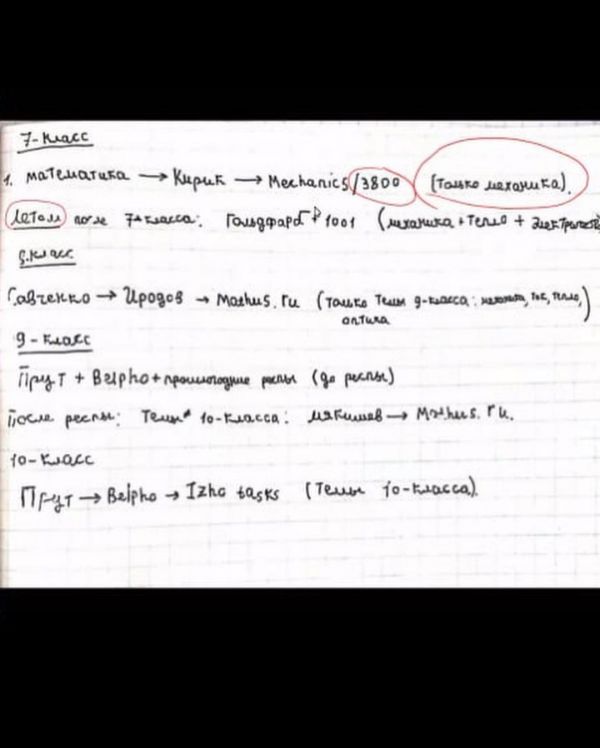 7-класс
1. математика → Кирик → Mechanics/3800 (только механика).
Летом после 7-класса: Гольдфарб + 1001 (механика + тепло + электричеств
8.класс
Савченко → Иродов → Mathus.ru (только темы 9-класса: механика, ток, тепло,
оптика)
9-класс
Прут + Belpho + прошлогодние респы (до респы)
После респы: Темы 10-класса: мякишев → Mathus.ru.
10-класс
Прут → Belpho → Izho tasks (Темы 10-класса).